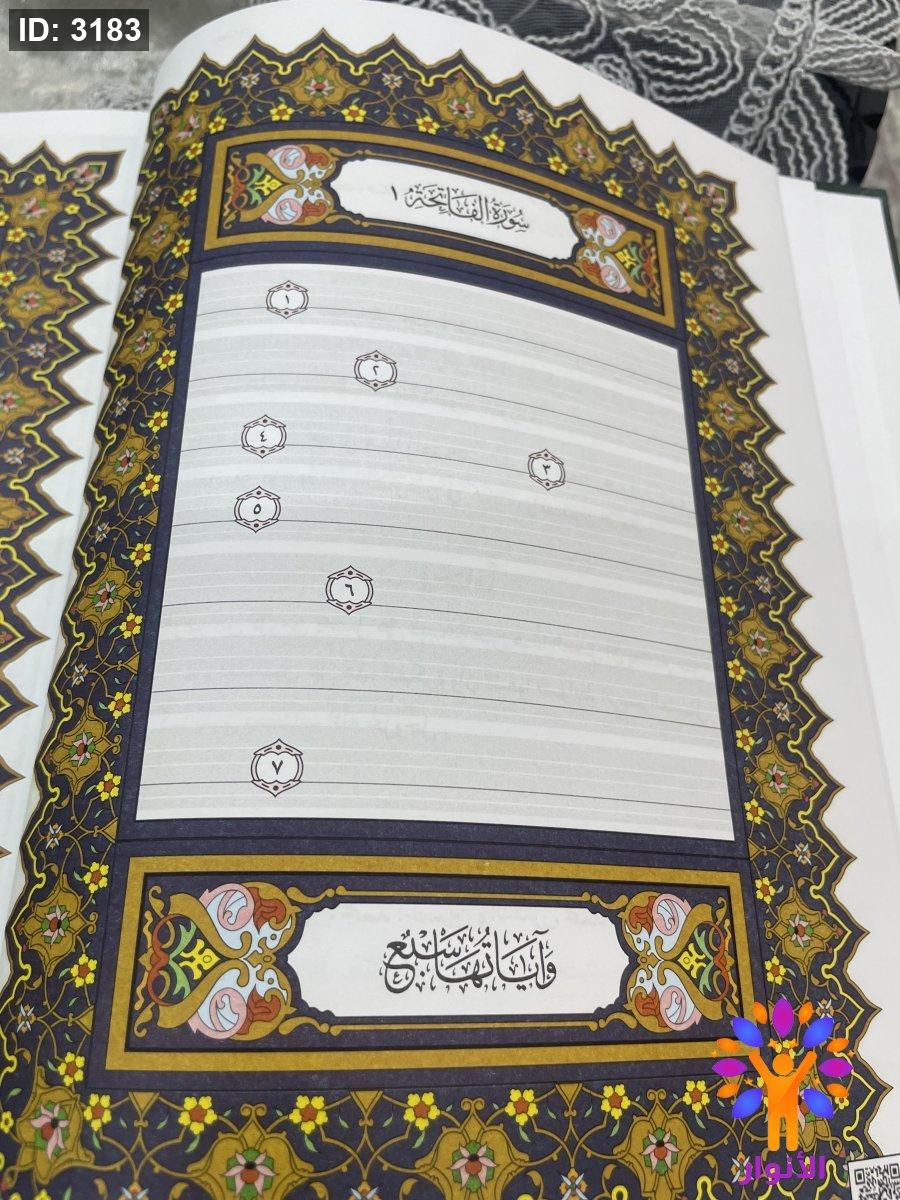 ID: 3183
سُورَةُ الْفَاتِحَةِ ١
١
٢
٣ ٤
٥
٦
٧
وَآيَاتُهَا سَبْعٌ
الأنوار